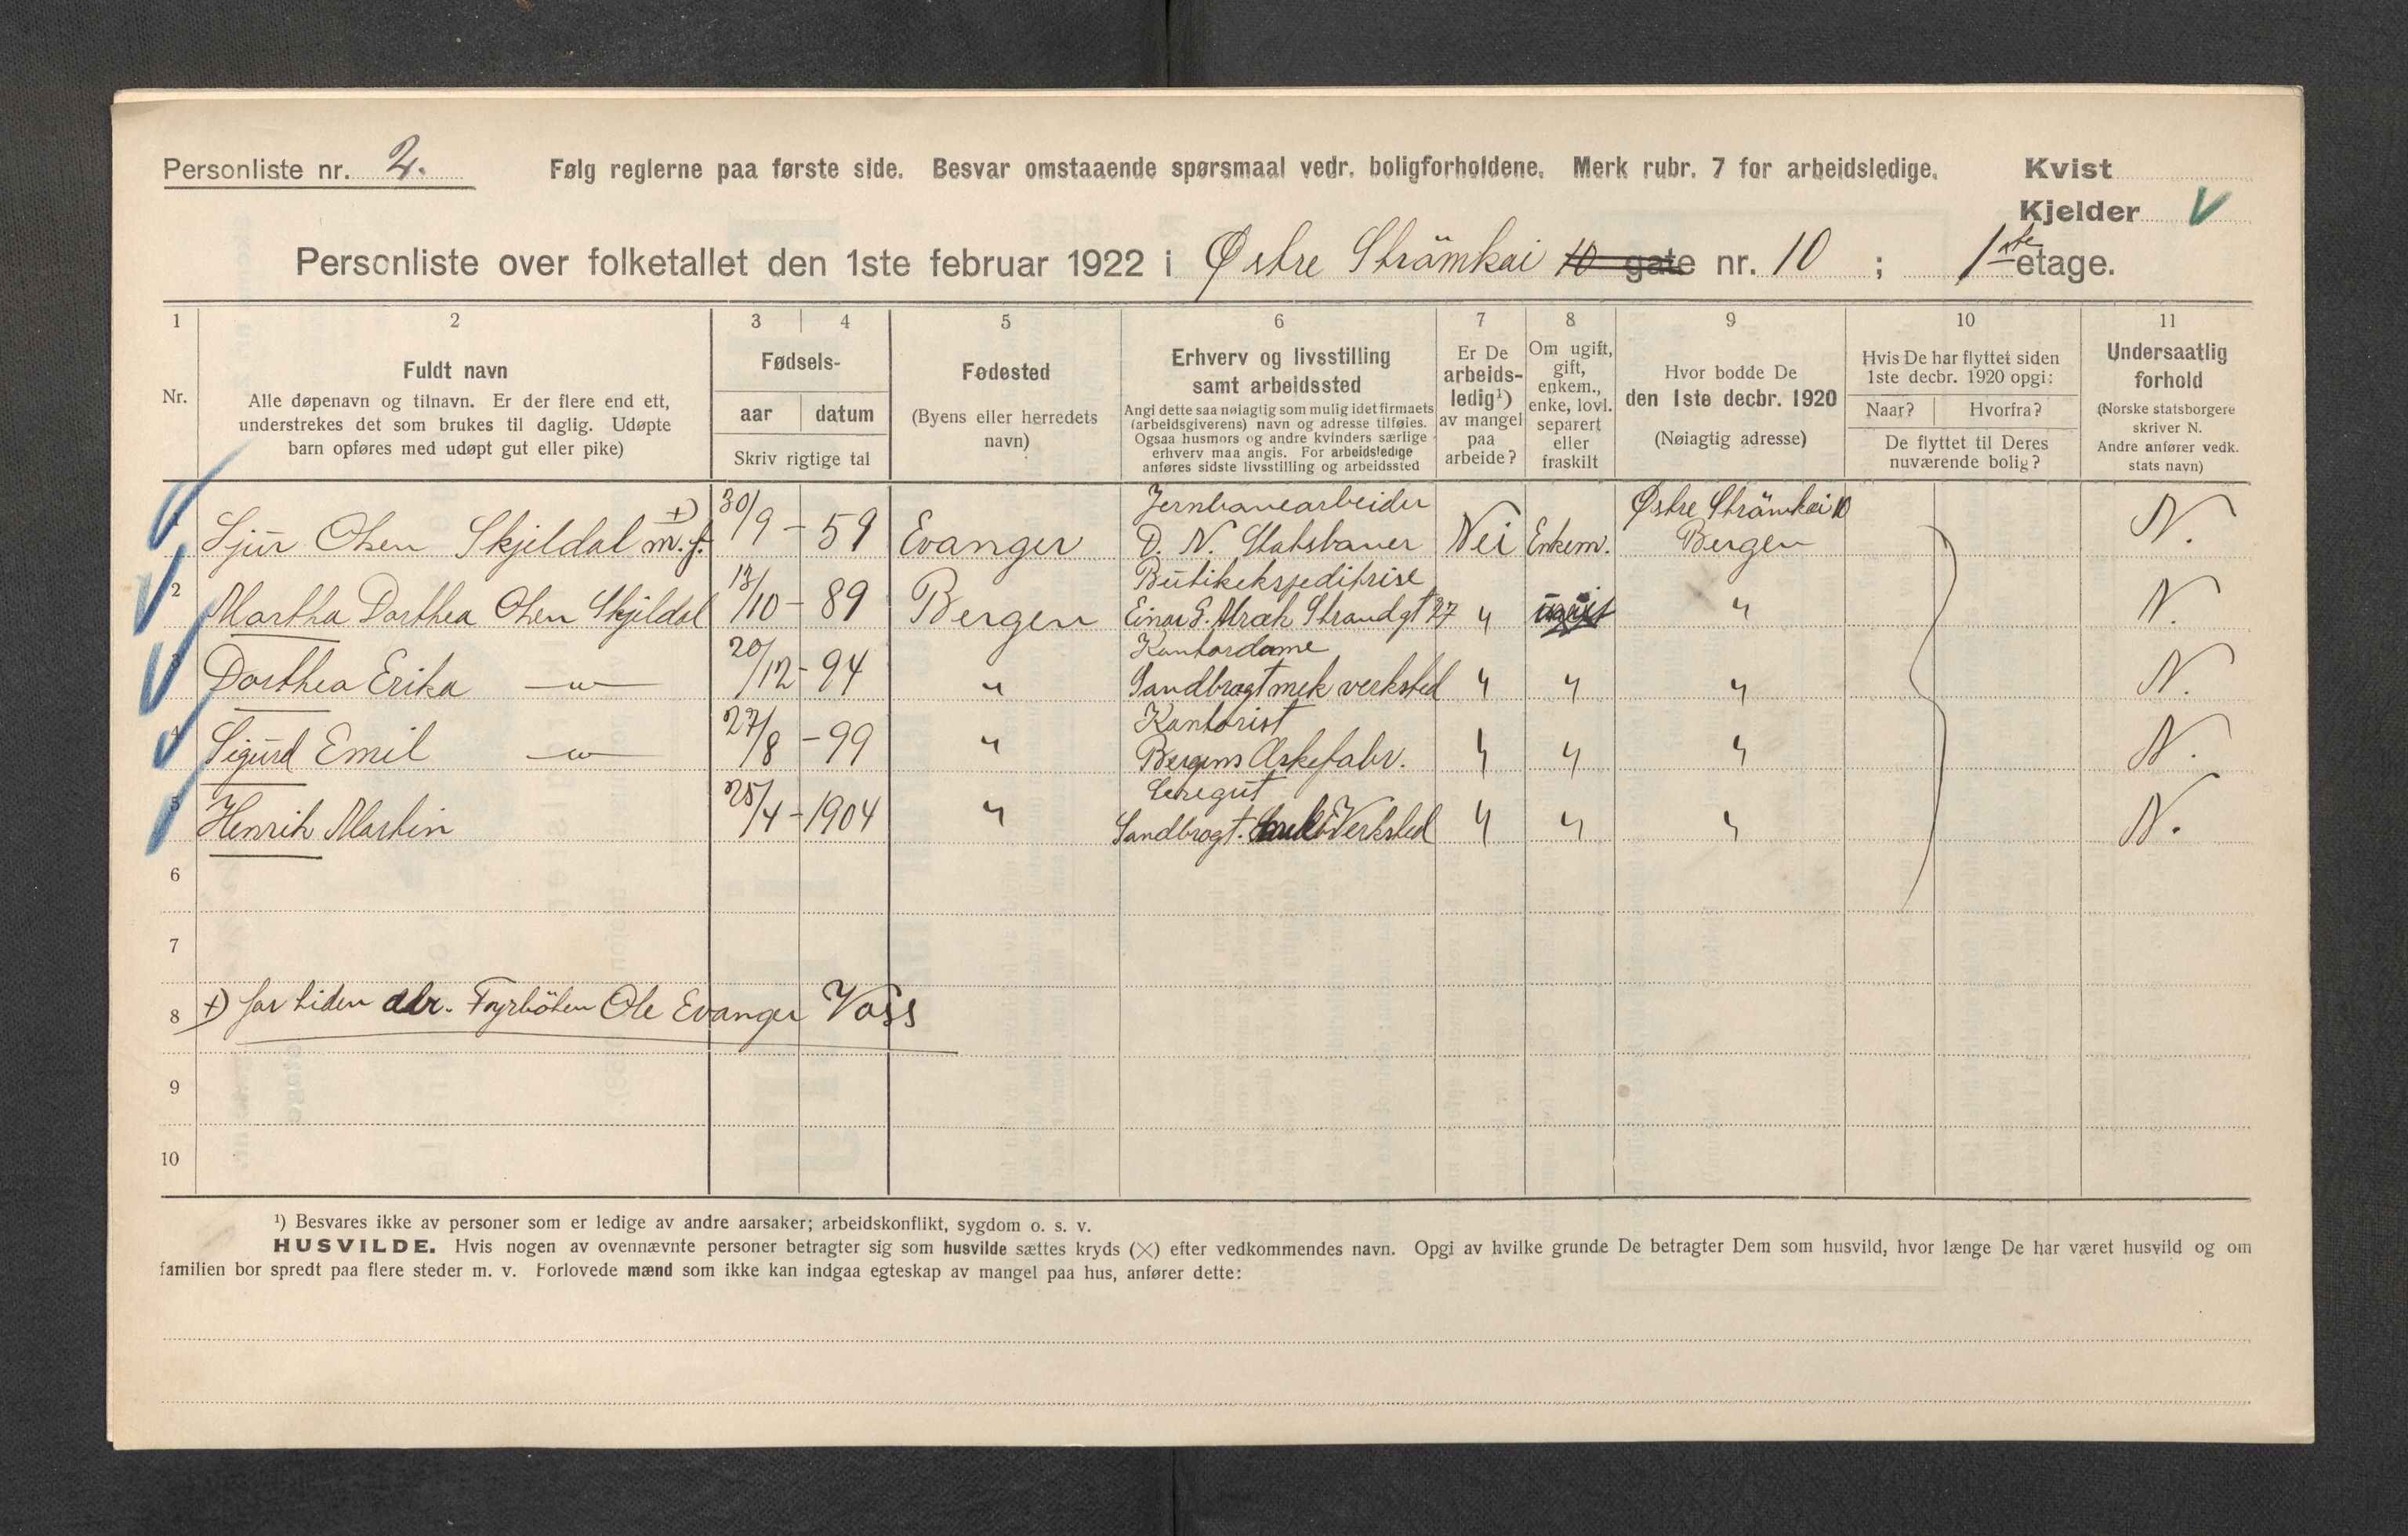 Personliste nr. 2. Følg reglerne paa første side. Besvar omstaaende spørsmaal vedr. boligforholdene. Merk rubr. 7 for arbeidsledige. Kvist
Kjelder V
Personliste over folketallet den 1ste februar 1922 i Østre Strömkai 10 gate nr. 10 ; 1ste etage.
1 2 3 4 5 6 7 8 9 10 11
Nr.
Fuldt navn
Alle døpenavn og tilnavn. Er der flere end ett,
understrekes det som brukes til daglig. Udøpte
barn opføres med udøpt gut eller pike)
Fødsels-
aar datum
Skriv rigtige tal
Fødested
(Byens eller herredets
navn)
Erhverv og livsstilling
samt arbeidssted
Angi dette saa nøiagtig som mulig idet firmaets
(arbeidsgiverens) navn og adresse tilføies.
Ogsaa husmors og andre kvinders særlige
erhverv maa angis. For arbeidsledige
anføres sidste livsstilling og arbeidssted
Er De
arbeids-
ledig¹)
av mangel
paa
arbeide?
Om ugift,
gift,
enkem.,
enke, lovl.
separert
eller
fraskilt
Hvor bodde De
den 1ste decbr. 1920
(Nøiagtig adresse)
Hvis De har flyttet siden
1ste decbr. 1920 opgi:
Naar? Hvorfra?
De flyttet til Deres
nuværende bolig?
Undersaatlig
forhold
(Norske statsborgere
skriver N.
Andre anfører vedk.
stats navn)
Jernbanearbeider Østre Strömkai 10
1 Sjur Olsen Skjeldal m. f. +) 30/9 - 59 Evanger D. N. Statsbaner Nei Enkem. Bergen N.
Butikekspeditrise
2 Martha Dorthea Olsen Skjeldal 13/10 - 89 Bergen Einar S. Strandgt 27 " ugift " N.
Kontordame
3 Dorthea Erika —"— 20/12 - 94 " Sandbrogt mek verksted " " " N.
Kontorist
4 Sigurd Emil —"— 27/8 - 99 " Bergens Æskefabr. " " " N.
Læregut
5 Henrik Martin 25/4 - 1904 " Sandbrogt. Verksted " " " N.
6
7
8 +) for tiden adr. Fyrböten Ole Evanger Voss
9
10
¹) Besvares ikke av personer som er ledige av andre aarsaker; arbeidskonflikt, sygdom o. s. v.
HUSVILDE. Hvis nogen av ovennævnte personer betragter sig som husvilde sættes kryds (×) efter vedkommendes navn. Opgi av hvilke grunde De betragter Dem som husvild, hvor længe De har været husvild og om
familien bor spredt paa flere steder m. v. Forlovede mænd som ikke kan indgaa egteskap av mangel paa hus, anfører dette: